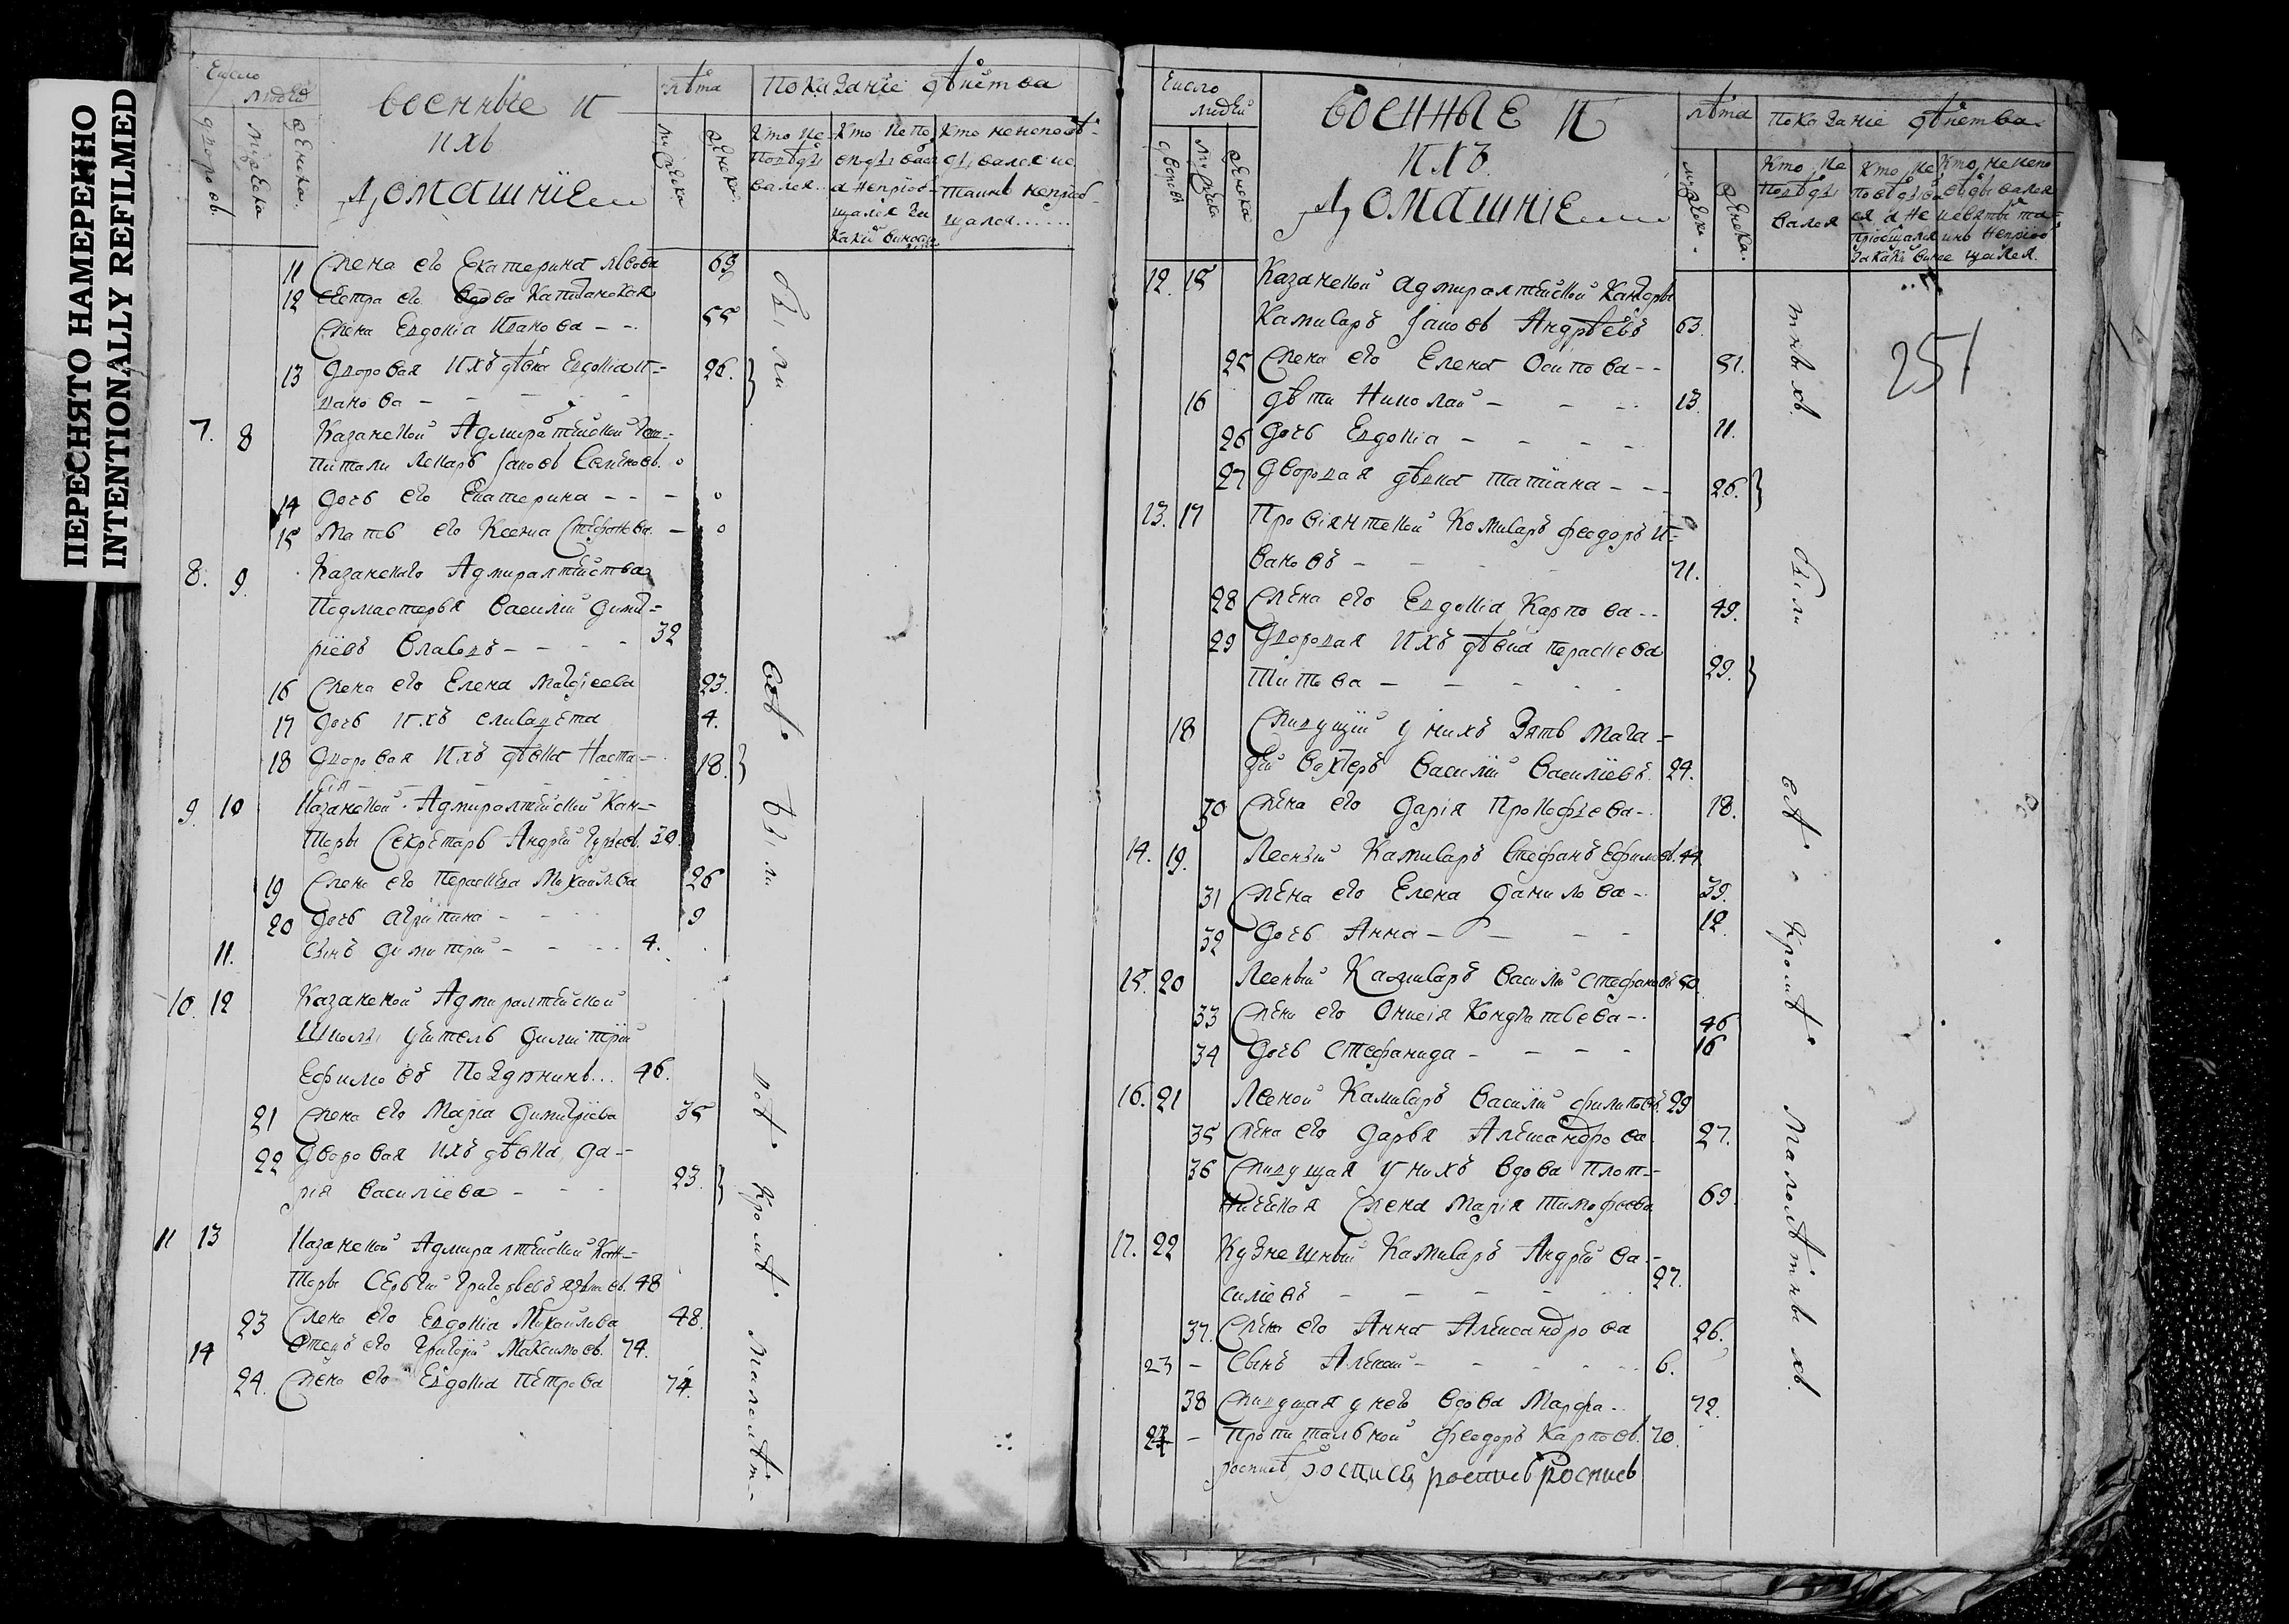 ПЕРЕСНЯТО НАМЕРЕННО
INTENTIONALLY REFILMED
Число
людей
дворовъ
мужеска
женска
военные и
ихъ
домашніе
лѣта
мужеска
женска
показаніе дѣйства
кто исповѣдывался
кто исповѣдывался а непріобщался за какой виною
кто неисповѣдывался и с. таинъ непріобщался
11 Жена его Екатерина Львова 69
12 сестра его вдова Капитанская
Жена Евдокіа Иванова - - 55
13 Дворовая ихъ дѣвка Евдокіа И= 26.
ванова - - - -
7. 8 Казанской Адмиралтейской Гош=
питали лекарь Іаковъ Семеновъ. 0
14 дочь его Екатерина - - - 0
15 Мать его Ксениа Стефанова - 0
8. 9. Казанскаго Адмиралтейства
Подмастерья Василий Дими=
риевъ Славовъ - - - - 32
16 Жена его Елена Матфеева 23.
17 дочь ихъ елисавета 4.
18 Дворовая ихъ дѣвка Наста= 18.
сія - - -
9. 10 Казанской Адмиралтейской Кан=
торы Секретарь Андрей Гурьев. 30
19 Жена его Параскева Михайлова 26
20 дочь агрипина - - - 9
11. сынъ димитрій - - - - 4.
10. 12 Казанской Адмиралтейской
Школы учитель Димитрій
Ефимовъ Позднинъ... 46.
21 Жена его Маріа Димитріева 35
22 Дворовая ихъ дѣвка, Да=
рія Василіева - - - 23.
11 13 Казанской Адмиралтейской Кан=
торы Сергѣй Григорьевъ 48
23 Жена его Евдокіа Михайлова 48.
14 Отецъ его Григорій Максимовъ. 74.
24. Жена его Евдокіа Петрова 74.
были
всѣ
были
всѣ
кромѣ
малолѣт-
Число
людей
дворовъ
мужеска
женска
военные и
ихъ.
домашніе
лѣта
мужеска
женска
показаніе дѣйства
кто исповѣдывался
кто исповѣдывался а непріобщался за какой виною
кто неисповѣдывался и святыхъ таинъ непріобщался.
251
12. 15 Казанской адмиралтейской Канторы
Камисаръ Іаковъ Андрѣевъ 63.
25 Жена его Елена Осипова - - 51.
16 дѣти Николай - - - 13.
26 дочь Евдокіа - - - - 11.
27 дворовая дѣвка татіана - - - 26.
13. 17 Провіянтской Комисаръ феодоръ И=
вановъ - - - - 71.
28 Жена его Евдокіа Карпова - - 49.
29 Дворовая ихъ дѣвка параскева
Титова - - - - - 29.
18 Живущій у нихъ Зять Мага=
зей вахтеръ Василій Василіевъ. 24.
30 Жена его Дарія Прокофьева - . 18.
14. 19. Лесный Камисаръ Стефанъ Ефимовъ. 44
31 Жена его Елена Данилова - . 39.
32 Дочь Анна - - - - 12.
15. 20 Лесный Камисаръ Василій Стефановъ 50.
33 Жена его Онисія Кондратьева - . 46
34 Дочь Стефанида - - - - 16
16. 21 Лесной Камисаръ Василій филиповъ. 29
35 Жена его Дарья Александрова. 27.
36 Живущая у нихъ вдова Плот=
ническая Жена Марія Тимофеева 69.
17. 22 Кузнешный Камисаръ Андрей Ва-
силіевъ - - - - - 27.
37. Жена его Анна Александрова 26.
23 - Сынъ Алексѣй - - - - - 6.
38 Живущая у него вдова Марфа.. 72.
24 - Пропитальной Феодоръ Карповъ. 70.
роспись роспись роспись роспись
тныхъ
были
всѣ
кромѣ
малолѣтныхъ.